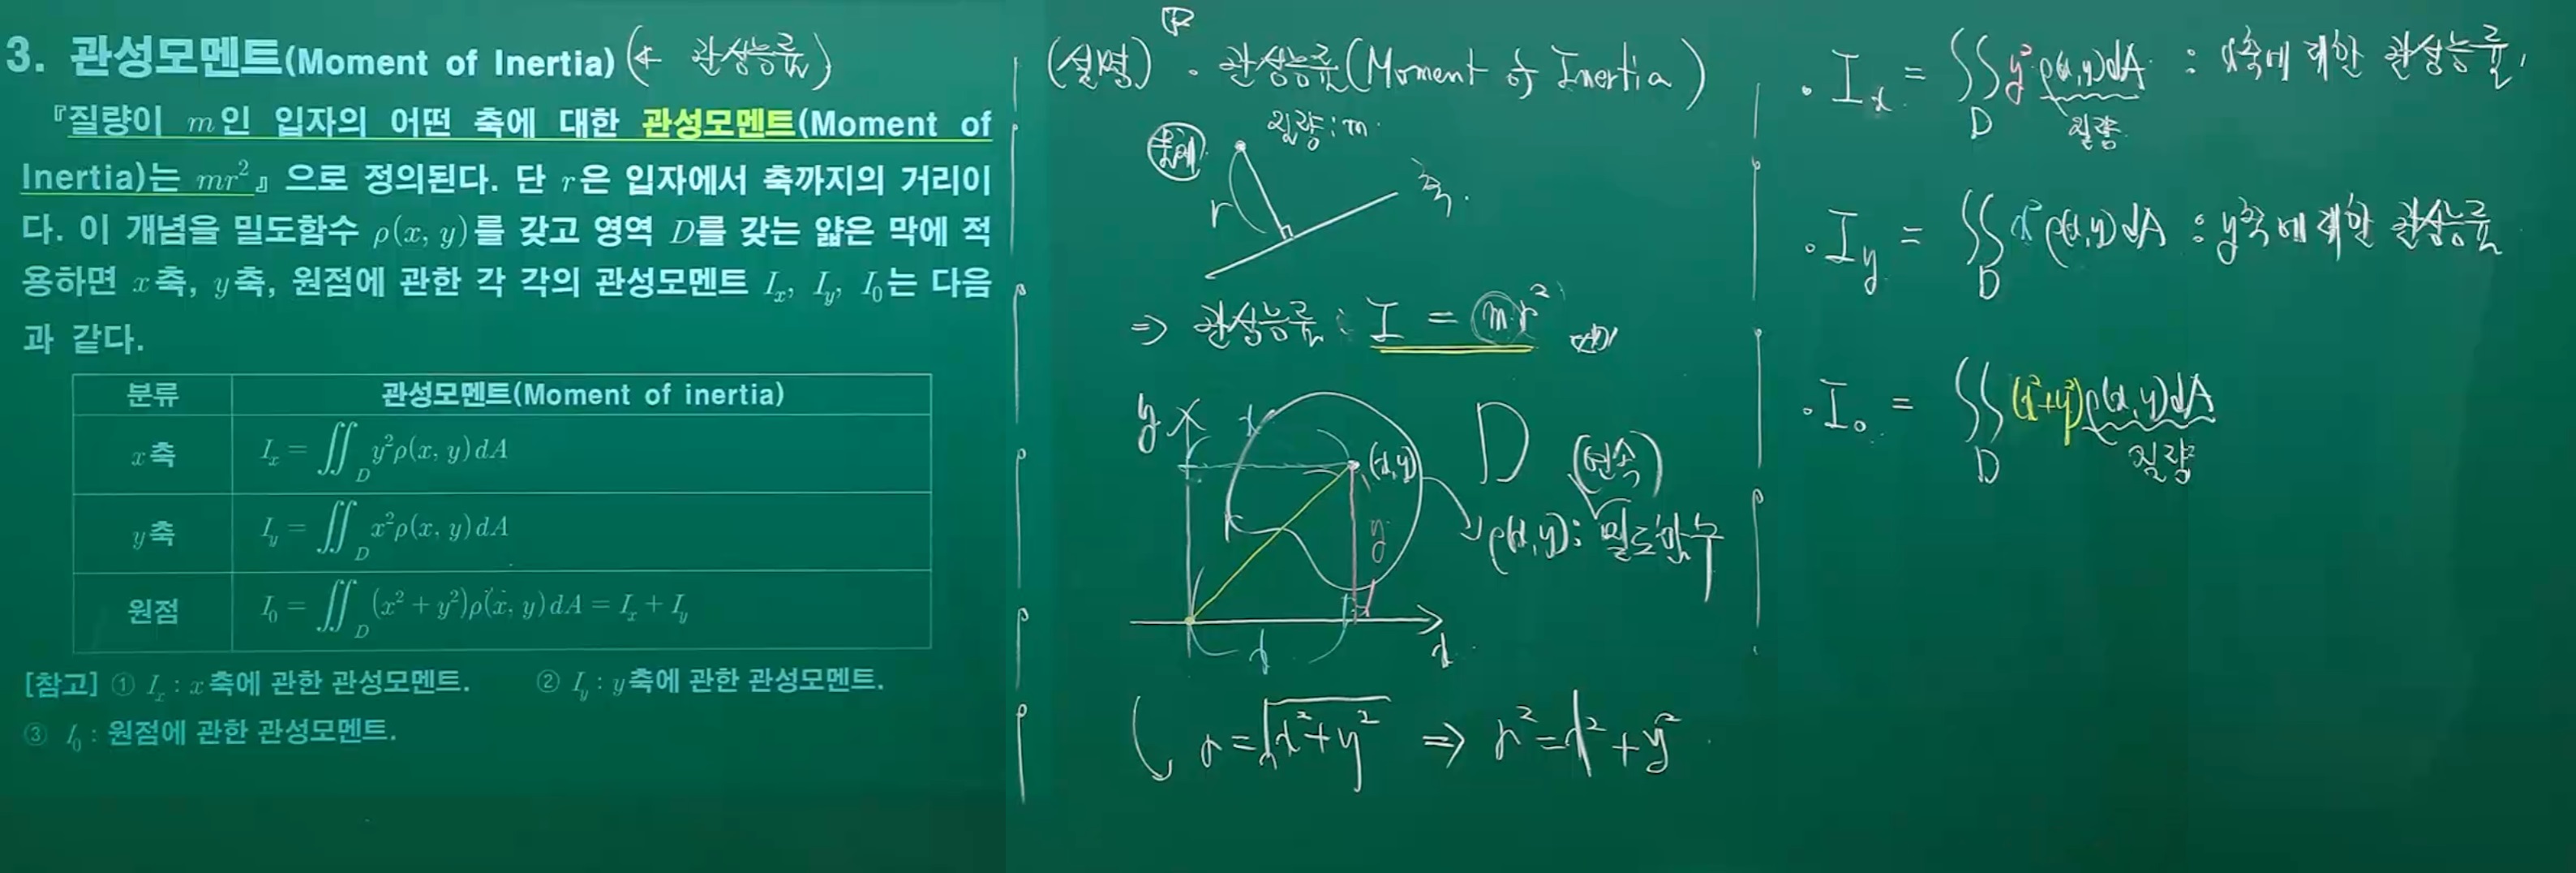 3. 관성모멘트(Moment of Inertia) (← 관성능률)
『질량이 m인 입자의 어떤 축에 대한 관성모멘트(Moment of
Inertia)는 mr²』으로 정의된다. 단 r은 입자에서 축까지의 거리이
다. 이 개념을 밀도함수 ρ(x, y)를 갖고 영역 D를 갖는 얇은 막에 적
용하면 x축, y축, 원점에 관한 각 각의 관성모멘트 I_x, I_y, I_0는 다음
과 같다.
분류 관성모멘트(Moment of inertia)
x축 I_x = ∬_D y²ρ(x, y)dA
y축 I_y = ∬_D x²ρ(x, y)dA
원점 I_0 = ∬_D (x² + y²)ρ(x, y)dA = I_x + I_y
[참고] ① I_x : x축에 관한 관성모멘트. ② I_y : y축에 관한 관성모멘트.
③ I_0 : 원점에 관한 관성모멘트.
(설명) · 관성능률(Moment of Inertia)
질량: m
물체
r
축.
⇒ 관성능률 : I = mr²
y
x
(x,y)
D
(연속)
y
ρ(x,y): 밀도함수
x
x
r = √x²+y² ⇒ r² = x² + y²
· I_x = ∬_D y² ρ(x,y)dA : x축에 대한 관성능률,
질량
· I_y = ∬_D x² ρ(x,y)dA : y축에 대한 관성능률
· I_0 = ∬_D (x²+y²)ρ(x,y)dA
질량